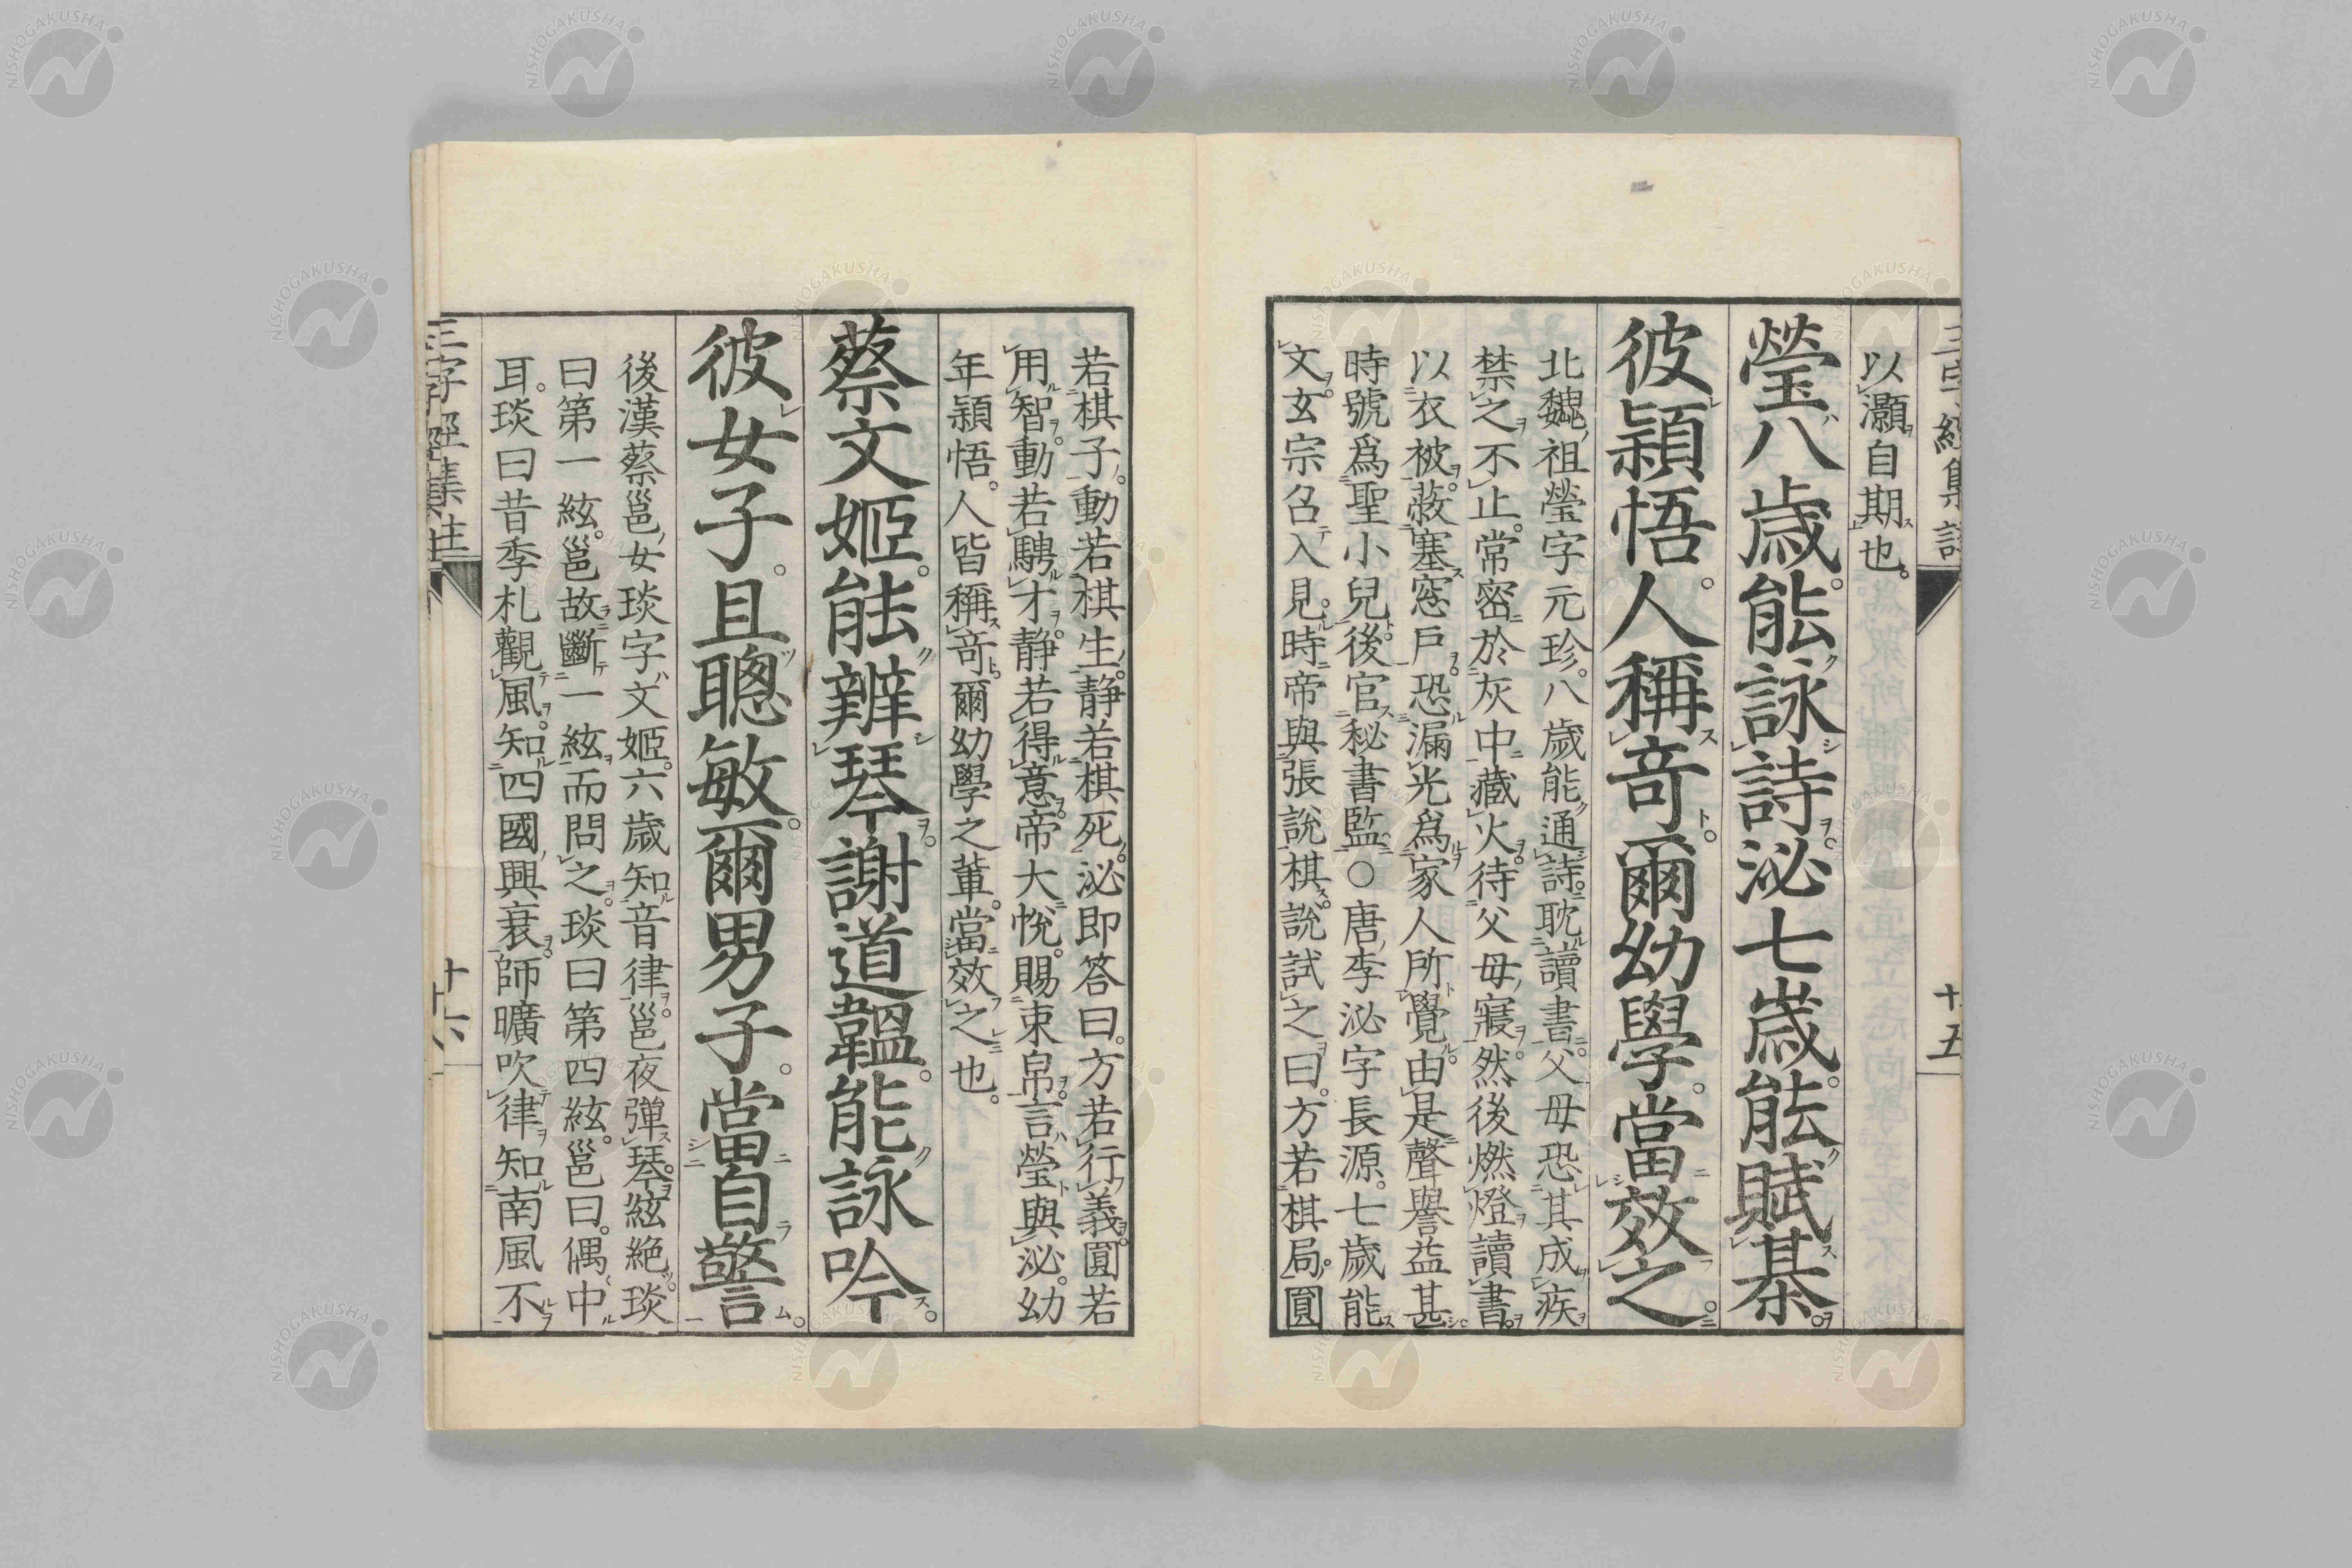 以灝自期也。
瑩八歲。能詠詩。泌七歲。能賦棊。
彼穎悟。人稱竒。爾幼學。當效之。
北魏祖瑩字元珍。八歲能通詩。耽讀書。父母恐其成疾
禁之不止。常密於灰中藏火。待父母寢。然後燃燈讀書。
以衣被。蔽塞窓戶。恐漏光爲家人所覺。由是聲譽益甚。
時號爲聖小兒。後官秘書監。○唐李泌字長源。七歲能
文。玄宗召入見。時帝與張說棋。說試之曰。方若棋局。圓
若棋子。動若棋生。静若棋死。泌即答曰。方若行義。圓若
用智。動若騁才。静若得意。帝大悅。賜束帛。言瑩與泌。幼
年穎悟。人皆稱竒。爾幼學之輩。當效之也。
蔡文姬。能辨琴。謝道韞。能詠吟。
彼女子。且聰敏。爾男子。當自警。
後漢蔡邕女琰字文姬。六歲知音律。邕夜彈琴。絃絶。琰
曰第一絃。邕故斷一絃而問之。琰曰第四絃。邕曰。偶中
耳。琰曰昔季札觀風。知四國興衰。師曠吹律。知南風不
三字經集註
十五
三字經集註
十六
NISHOGAKUSHA